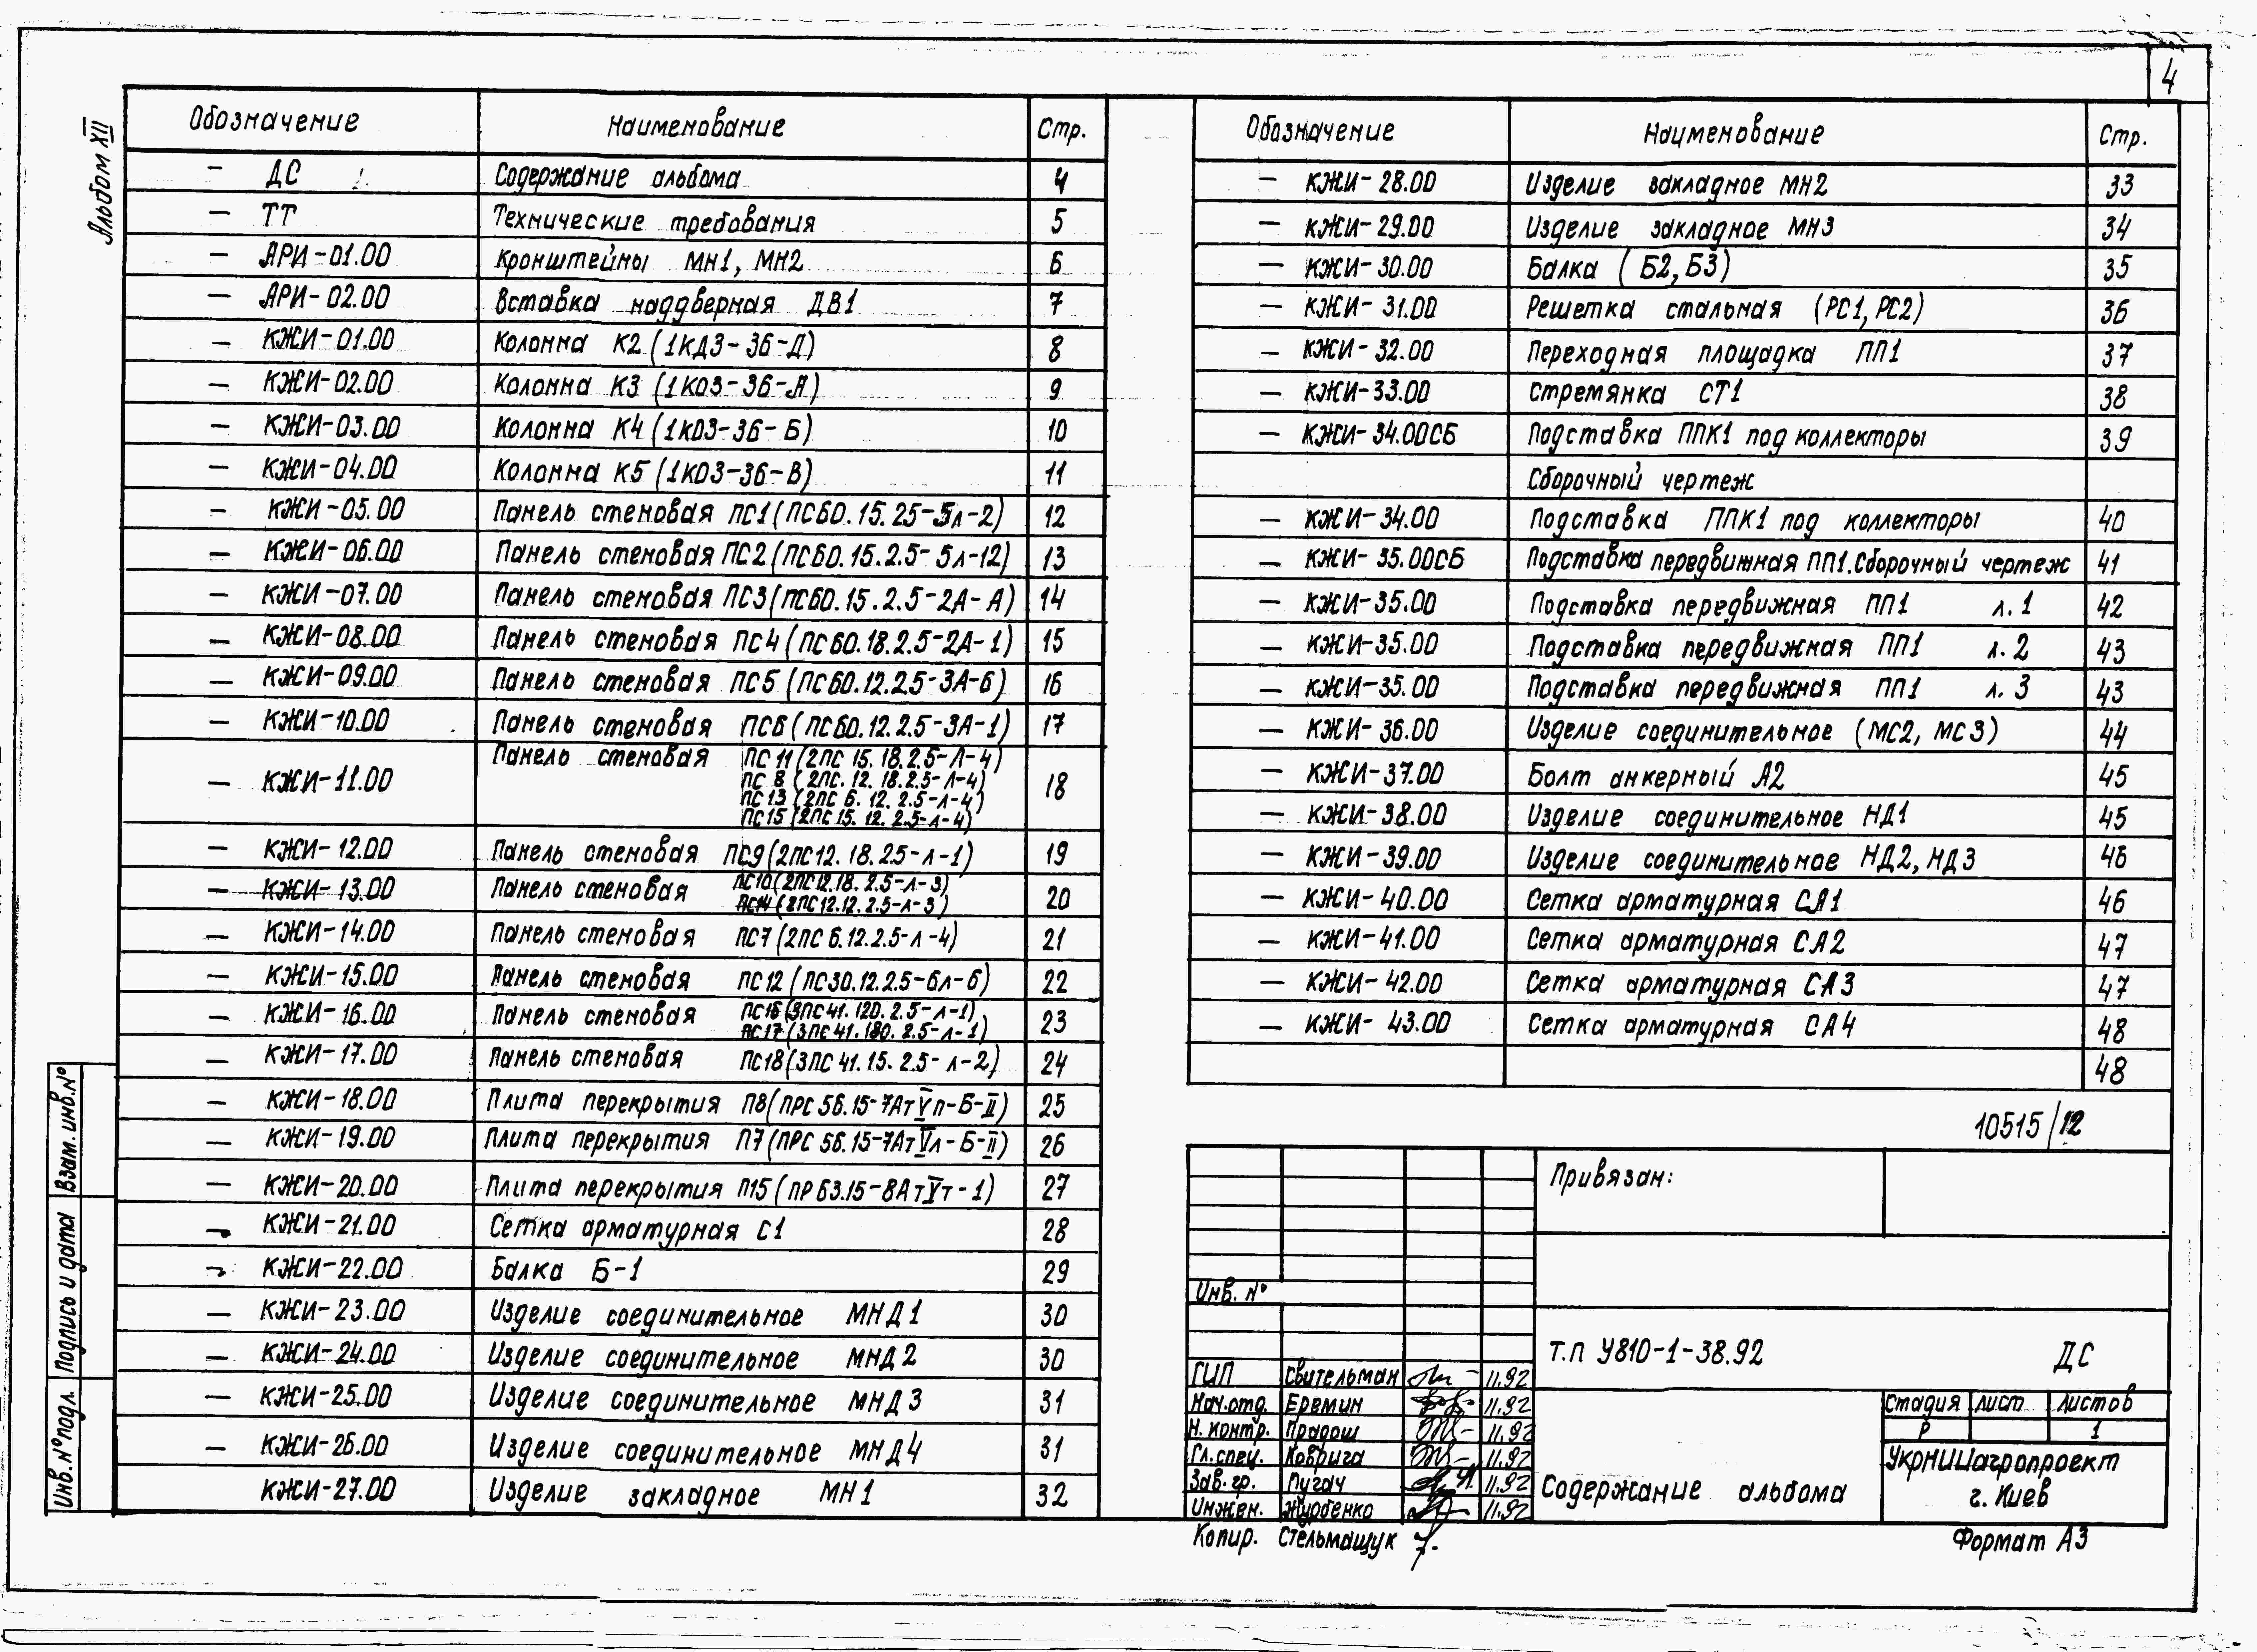 4
Альбом XII
Обозначение Наименование Стр.
— ДС Содержание альбома 4
— ТТ Технические требования 5
— АРИ-01.00 Кронштейны МН1, МН2 6
— АРИ-02.00 Вставка наддверная ДВ1 7
— КЖИ-01.00 Колонна К2 (1КД3-36-Д) 8
— КЖИ-02.00 Колонна К3 (1К03-36-А) 9
— КЖИ-03.00 Колонна К4 (1К03-36-Б) 10
— КЖИ-04.00 Колонна К5 (1К03-36-В) 11
— КЖИ-05.00 Панель стеновая ПС1 (ПС60.15.25-5л-2) 12
— КЖИ-06.00 Панель стеновая ПС2 (ПС60.15.2.5-5л-12) 13
— КЖИ-07.00 Панель стеновая ПС3 (ПС60.15.2.5-2А-А) 14
— КЖИ-08.00 Панель стеновая ПС4 (ПС60.18.2.5-2А-1) 15
— КЖИ-09.00 Панель стеновая ПС5 (ПС60.12.2.5-3А-6) 16
— КЖИ-10.00 Панель стеновая ПС6 (ПС60.12.2.5-3А-1) 17
— КЖИ-11.00 Панель стеновая ПС11 (2ПС 15.18.2.5-Л-4) 18
ПС 8 (2ПС. 12. 18.2.5-Л-4)
ПС13 (2ПС 6. 12. 2.5-л-4)
ПС15 (2ПС 15. 12. 2.5-л-4)
— КЖИ-12.00 Панель стеновая ПС9 (2ПС12.18.25-л-1) 19
— КЖИ-13.00 Панель стеновая ПС10 (2ПС12.18. 2.5-Л-3) 20
ПС14 (2ПС12.12. 2.5-л-3)
— КЖИ-14.00 Панель стеновая ПС7 (2ПС 6.12.2.5-л-4) 21
— КЖИ-15.00 Панель стеновая ПС12 (ПС30.12.2.5-6л-6) 22
— КЖИ-16.00 Панель стеновая ПС16 (3ПС41. 120. 2.5-л-1) 23
ПС17 (3ПС41. 180. 2.5-л-1)
— КЖИ-17.00 Панель стеновая ПС18 (3ПС 41. 15. 2.5-л-2) 24
— КЖИ-18.00 Плита перекрытия П8 (ПРС 56.15-7АтVп-Б-II) 25
— КЖИ-19.00 Плита перекрытия П7 (ПРС 56.15-7АтVл-Б-II) 26
— КЖИ-20.00 Плита перекрытия П15 (ПР 63.15-8АтVт-1) 27
— КЖИ-21.00 Сетка арматурная С1 28
— КЖИ-22.00 Балка Б-1 29
— КЖИ-23.00 Изделие соединительное МНД1 30
— КЖИ-24.00 Изделие соединительное МНД2 30
— КЖИ-25.00 Изделие соединительное МНД3 31
— КЖИ-26.00 Изделие соединительное МНД4 31
КЖИ-27.00 Изделие закладное МН1 32
Обозначение Наименование Стр.
— КЖИ-28.00 Изделие закладное МН2 33
— КЖИ-29.00 Изделие закладное МН3 34
— КЖИ-30.00 Балка (Б2, Б3) 35
— КЖИ-31.00 Решетка стальная (РС1, РС2) 36
— КЖИ-32.00 Переходная площадка ПП1 37
— КЖИ-33.00 Стремянка СТ1 38
— КЖИ-34.00СБ Подставка ППК1 под коллекторы 39
Сборочный чертеж
— КЖИ-34.00 Подставка ППК1 под коллекторы 40
— КЖИ-35.00СБ Подставка передвижная ПП1. Сборочный чертеж 41
— КЖИ-35.00 Подставка передвижная ПП1 л. 1 42
— КЖИ-35.00 Подставка передвижная ПП1 л. 2 43
— КЖИ-35.00 Подставка передвижная ПП1 л. 3 43
— КЖИ-36.00 Изделие соединительное (МС2, МС3) 44
— КЖИ-37.00 Болт анкерный А2 45
— КЖИ-38.00 Изделие соединительное НД1 45
— КЖИ-39.00 Изделие соединительное НД2, НД3 46
— КЖИ-40.00 Сетка арматурная СА1 46
— КЖИ-41.00 Сетка арматурная СА2 47
— КЖИ-42.00 Сетка арматурная СА3 47
— КЖИ-43.00 Сетка арматурная СА4 48
48
10515/12
Привязан:
Инв. №
Т.П У810-1-38.92 ДС
ГИП Свительман 11.92
Нач.отд. Еремин 11.92
Н. контр. Прадош 11.92
Гл. спец. Коврига 11.92
Зав. гр. Пугач 11.92
Инжен. Журбенко 11.92
Содержание альбома
Стадия Лист Листов
Р 1
УкрНИИагропроект
г. Киев
Копир. Стельмащук
Формат А3
Взам. инв. №
Подпись и дата
Инв. № подл.